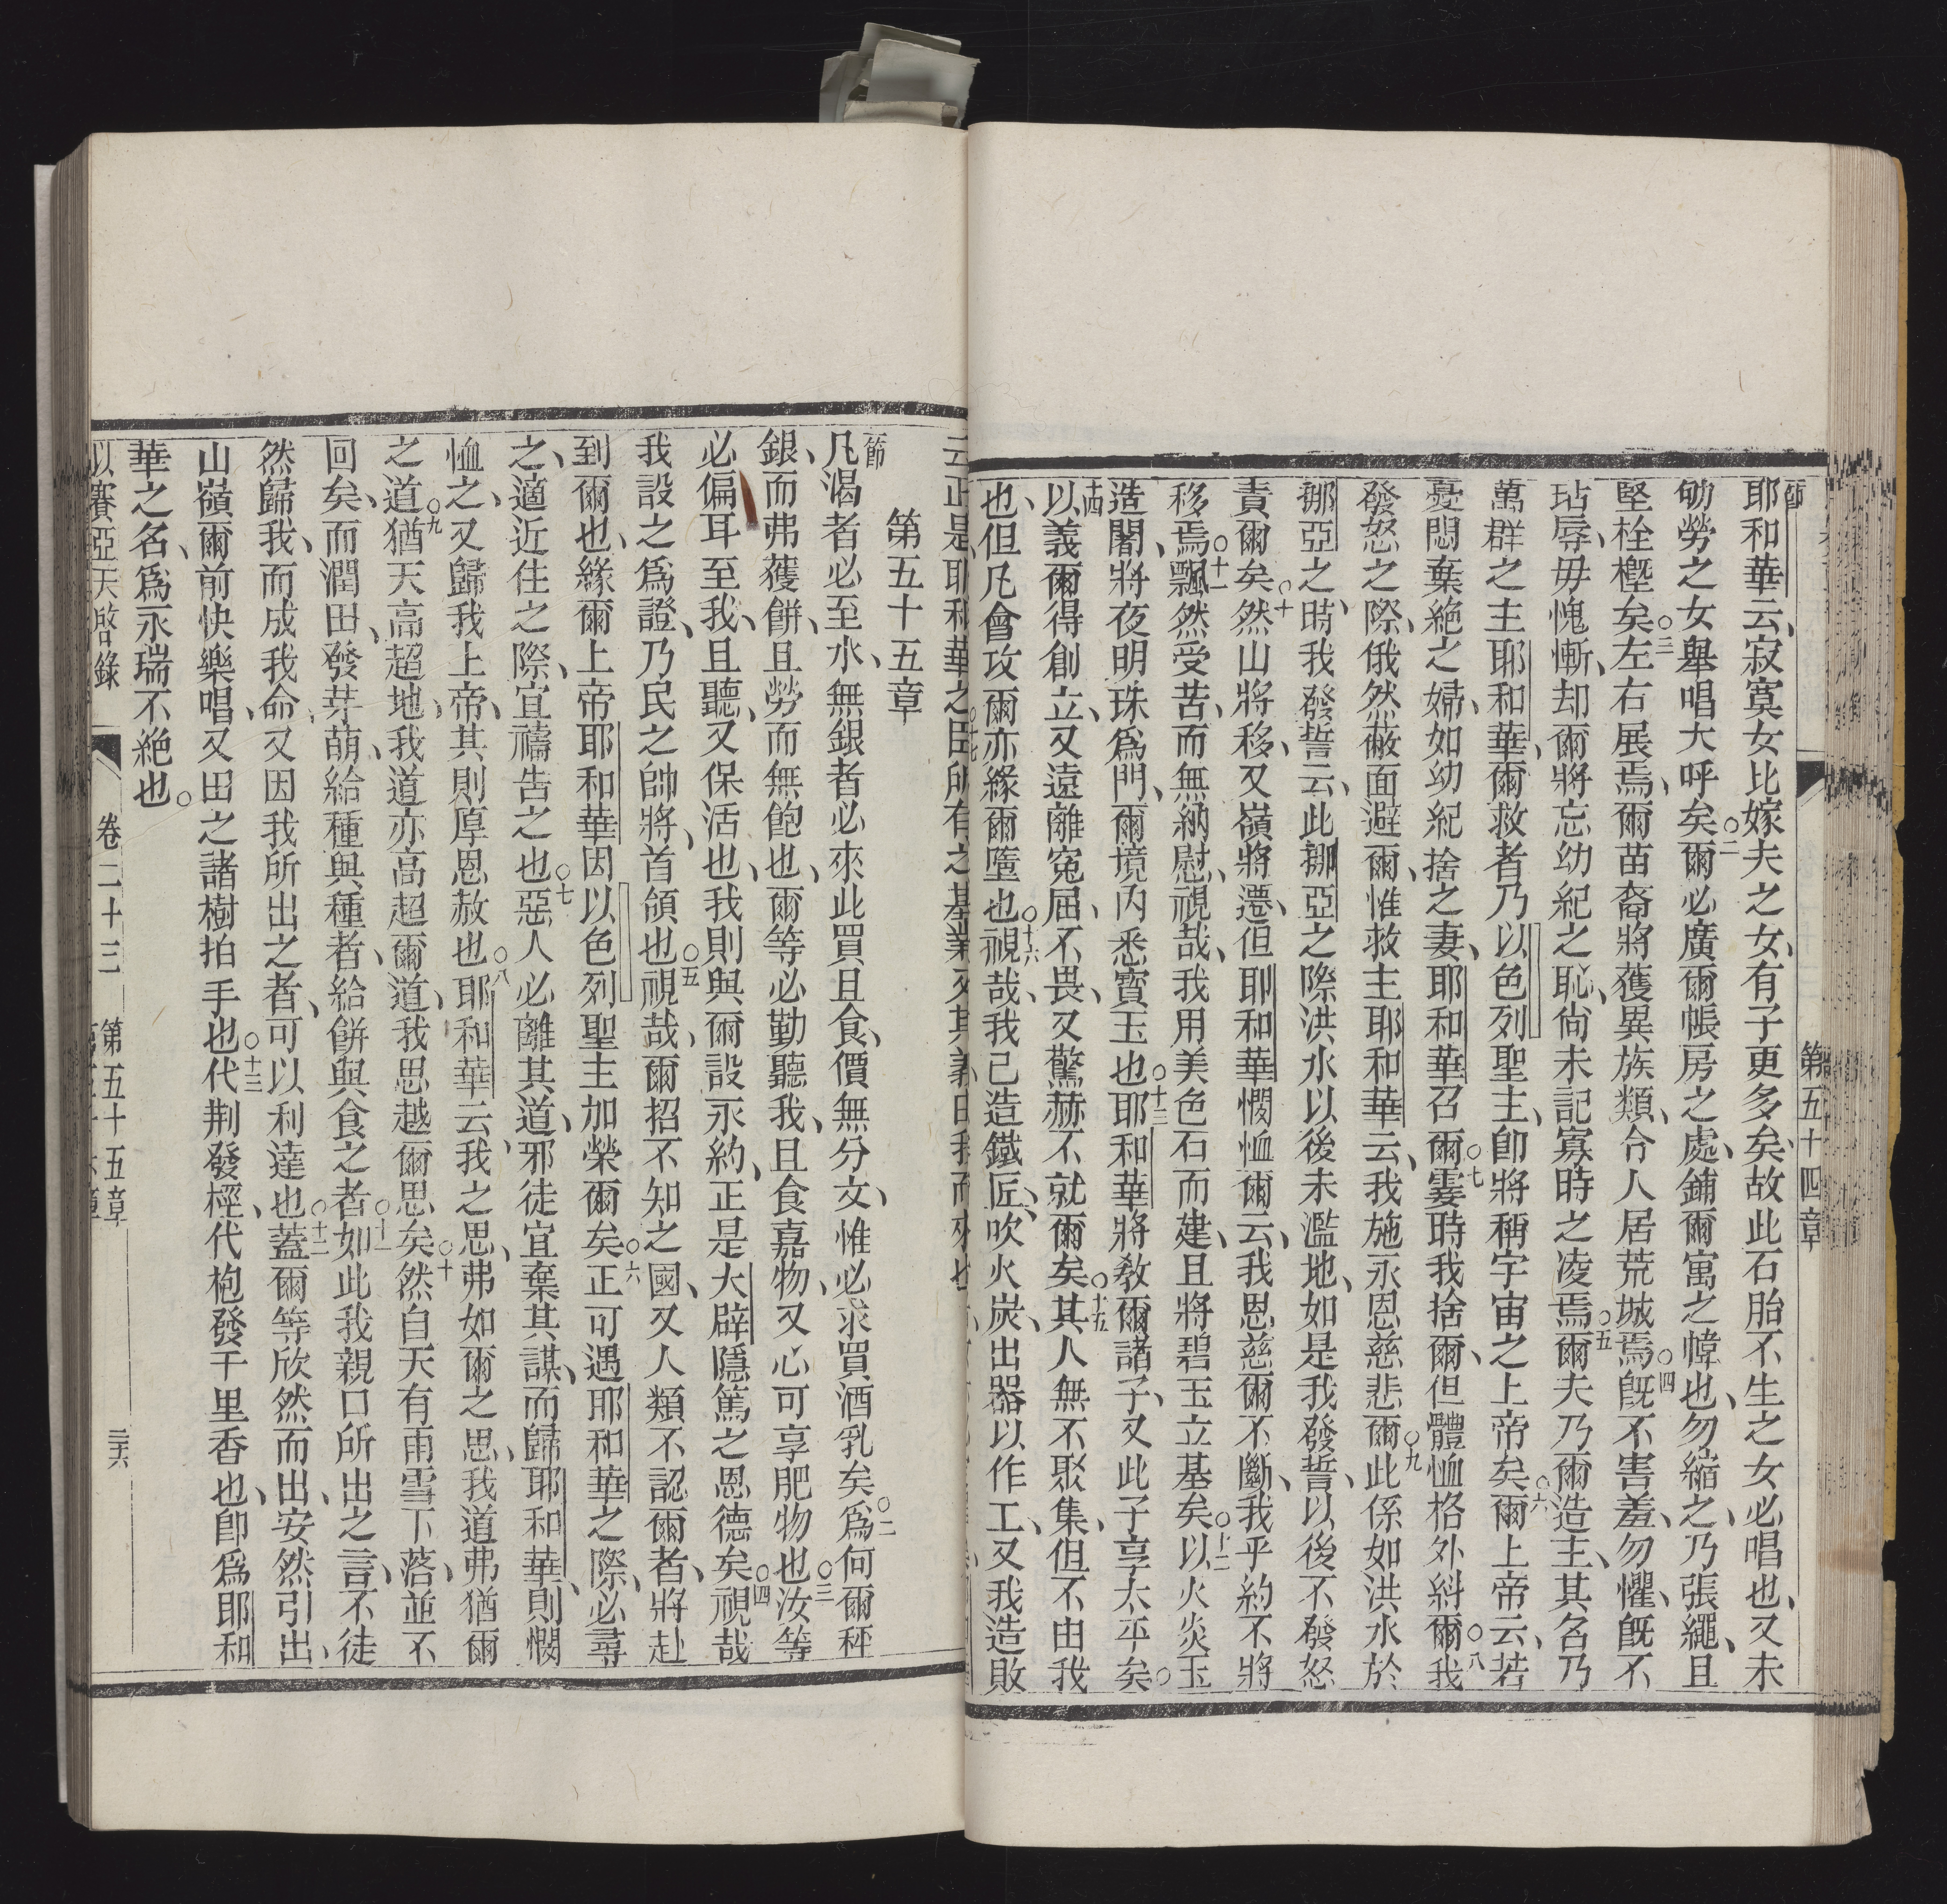 第五十四章
節
耶和華云、寂寞女比嫁夫之女、有子更多矣、故此石胎不生之女必唱也、又未
劬勞之女舉唱大呼矣○二爾必廣爾帳房之處、鋪爾寓之幃也、勿縮之、乃張繩、且
堅栓橛矣○三左右展焉、爾苗裔將獲異族類、令人居荒城焉○四旣不害羞、勿懼、旣不
玷辱、毋愧慚、却爾將忘幼紀之恥、尙未記寡時之凌焉○五爾夫乃爾造主、其名乃
萬群之主耶和華、爾救者乃以色列聖主、卽將稱宇宙之上帝矣○六爾上帝云、若
憂悶棄絕之婦、如幼紀捨之妻、耶和華召爾○七霎時我捨爾、但體恤格外糾爾○八我
發怒之際、俄然蔽面避爾、惟救主耶和華云、我施永恩慈悲爾○九此係如洪水於
挪亞之時、我發誓云、此挪亞之際洪水以後未濫地、如是我發誓、以後不發怒
責爾矣○十然山將移、又嶺將遷、但耶和華憫恤爾云、我恩慈爾不斷、我乎約不將
移焉○十一飄然受苦、而無納慰、視哉、我用美色石而建、且將碧玉立基矣○十二以火炎玉
造闍、將夜明珠爲門、爾境內悉寶玉也○十三耶和華將敎爾諸子、又此子享太平矣○
十四以義爾得創立、又遠離寃屈、不畏、又驚赫不就爾矣○十五其人無不聚集、但不由我
也、但凡會攻爾亦緣爾墮也○十六視哉、我已造鐵匠、吹火炭、出器以作工、又我造敗
云正是耶和華之臣所有之基業又其義由我而來也
第五十五章
節
凡渴者必至水、無銀者必來此買且食、價無分文、惟必求買酒乳矣○二爲何爾秤
銀、而弗獲餅、且勞而無飽也、爾等必勤聽我、且食嘉物、又心可享肥物也○三汝等
必偏耳至我、且聽、又保活也、我則與爾設永約、正是大辟隱篤之恩德矣○四視哉
我設之爲證、乃民之帥將、首領也○五視哉、爾招不知之國、又人類不認爾者、將赴
到爾也、緣爾上帝耶和華因以色列聖主加榮爾矣○六正可遇耶和華之際、必尋
之、適近住之際、宜禱告之也○七惡人必離其道、邪徒宜棄其謀、而歸耶和華、則憫
恤之、又歸我上帝、其則厚恩赦也○八耶和華云、我之思、弗如爾之思、我道弗猶爾
之道○九猶天高超地、我道亦高超爾道、我思越爾思矣○十然自天有雨雪下落、並不
回矣、而潤田、發芽萌、給種與種者、給餅與食之者○十一如此我親口所出之言、不徒
然歸我、而成我命、又因我所出之者、可以利達也○十二蓋爾等欣然而出、安然引出、
山嶺爾前快樂唱、又田之諸樹拍手也○十三代荆發桱、代枹發千里香也、卽爲耶和
華之名、爲永瑞不絕也○
以賽亞天啓錄 卷二十三 第五十五章 三六